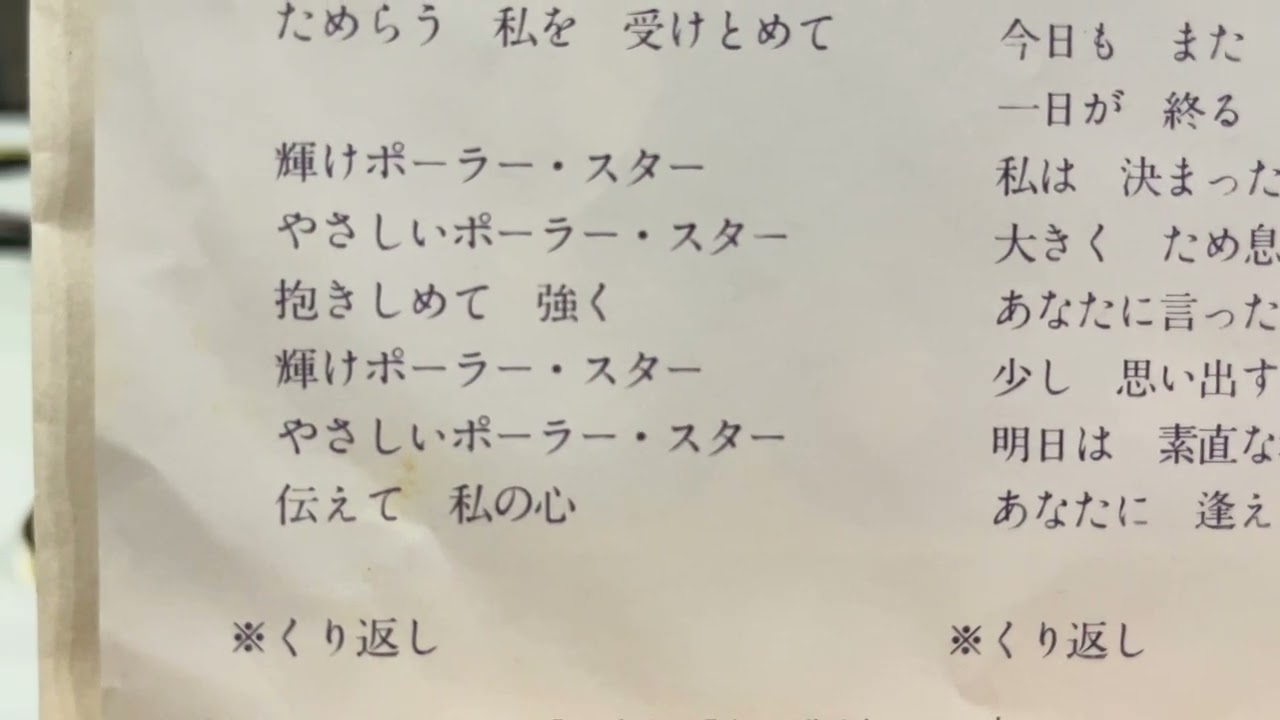 ためらう 私を 受けとめて
輝けポーラー・スター
やさしいポーラー・スター
抱きしめて 強く
輝けポーラー・スター
やさしいポーラー・スター
伝えて 私の心
※くり返し
今日も また
一日が 終る
私は 決まった
大きく ため息
あなたに言った
少し 思い出す
明日は 素直な
あなたに 逢え
※くり返し